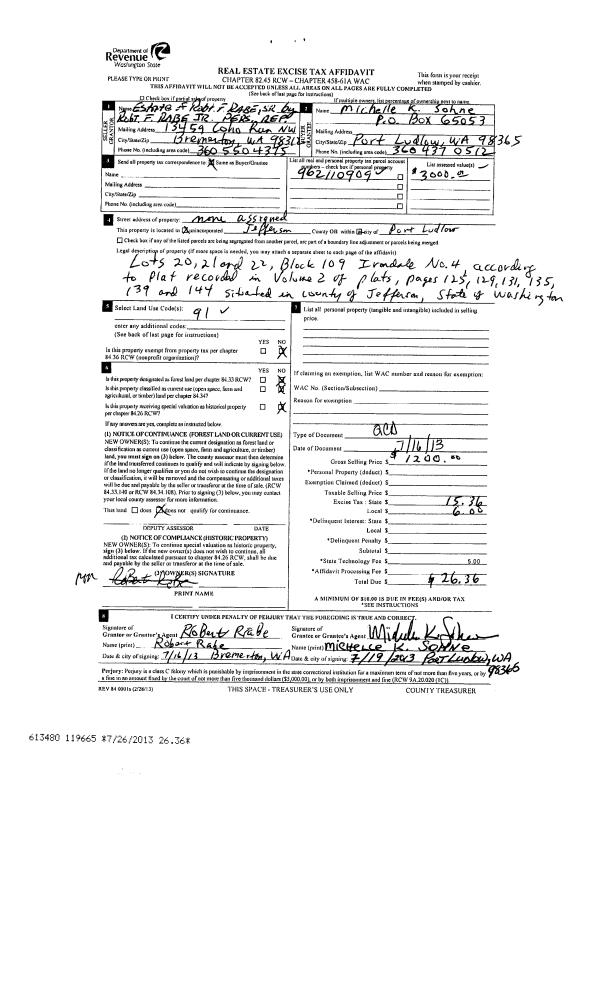 Department of
Revenue
Washington State
REAL ESTATE EXCISE TAX AFFIDAVIT
This form is your receipt
when stamped by cashier.
PLEASE TYPE OR PRINT
CHAPTER 82.45 RCW – CHAPTER 458-61A WAC
THIS AFFIDAVIT WILL NOT BE ACCEPTED UNLESS ALL AREAS ON ALL PAGES ARE FULLY COMPLETED
(See back of last page for instructions)
Check box if partial sale of property
If multiple owners, list percentage of ownership next to name.
1
SELLER GRANTOR
Name Estate of Robt. F. RABE, SR by
Robt. F. RABE JR. PERS. REP.
Mailing Address 13459 Coho Run NW
City/State/Zip Bremerton, WA 98312
Phone No. (including area code) 360 550 4375
2
BUYER GRANTEE
Name Michelle K. Sohne
P.O. Box 65053
Mailing Address
City/State/Zip Port Ludlow, WA 98365
Phone No. (including area code) 360 437 0512
3
Send all property tax correspondence to: Same as Buyer/Grantee
Name
Mailing Address
City/State/Zip
Phone No. (including area code)
List all real and personal property tax parcel account
numbers – check box if personal property
962110909
List assessed value(s)
$3000.00
4
Street address of property: none assigned
This property is located in unincorporated Jefferson County OR within city of Port Ludlow
Check box if any of the listed parcels are being segregated from another parcel, are part of a boundary line adjustment or parcels being merged
Legal description of property (if more space is needed, you may attach a separate sheet to each page of the affidavit)
Lots 20, 21 and 22, Block 109 Irondale No. 4 according
to Plat recorded in Volume 2 of plats, pages 125, 129, 131, 135,
139 and 144 situated in county of Jefferson, State of Washington
5
Select Land Use Code(s):
91
enter any additional codes:
(See back of last page for instructions)
YES NO
Is this property exempt from property tax per chapter
84.36 RCW (nonprofit organization)?
6
YES NO
Is this property designated as forest land per chapter 84.33 RCW?
Is this property classified as current use (open space, farm and
agricultural, or timber) land per chapter 84.34?
Is this property receiving special valuation as historical property
per chapter 84.26 RCW?
If any answers are yes, complete as instructed below.
(1) NOTICE OF CONTINUANCE (FOREST LAND OR CURRENT USE)
NEW OWNER(S): To continue the current designation as forest land or
classification as current use (open space, farm and agriculture, or timber)
land, you must sign on (3) below. The county assessor must then determine
if the land transferred continues to qualify and will indicate by signing below.
If the land no longer qualifies or you do not wish to continue the designation
or classification, it will be removed and the compensating or additional taxes
will be due and payable by the seller or transferor at the time of sale. (RCW
84.33.140 or RCW 84.34.108). Prior to signing (3) below, you may contact
your local county assessor for more information.
This land does does not qualify for continuance.
DEPUTY ASSESSOR DATE
(2) NOTICE OF COMPLIANCE (HISTORIC PROPERTY)
NEW OWNER(S): To continue special valuation as historic property,
sign (3) below. If the new owner(s) does not wish to continue, all
additional tax calculated pursuant to chapter 84.26 RCW, shall be due
and payable by the seller or transferor at the time of sale.
(3) OWNER(S) SIGNATURE
Robert Rabe
PRINT NAME
7
List all personal property (tangible and intangible) included in selling
price.
If claiming an exemption, list WAC number and reason for exemption:
WAC No. (Section/Subsection)
Reason for exemption
Type of Document QCD
Date of Document 7/16/13
Gross Selling Price $ 1200.00
*Personal Property (deduct) $
Exemption Claimed (deduct) $
Taxable Selling Price $
Excise Tax : State $ 15.36
Local $ 6.00
*Delinquent Interest: State $
Local $
*Delinquent Penalty $
Subtotal $
*State Technology Fee $ 5.00
*Affidavit Processing Fee $
Total Due $ $26.36
A MINIMUM OF $10.00 IS DUE IN FEE(S) AND/OR TAX
*SEE INSTRUCTIONS
8
I CERTIFY UNDER PENALTY OF PERJURY THAT THE FOREGOING IS TRUE AND CORRECT.
Signature of
Grantor or Grantor's Agent Robert Rabe
Name (print) Robert Rabe
Date & city of signing: 7/16/13 Bremerton, WA
Signature of
Grantee or Grantee's Agent Michelle K. Sohne
Name (print) Michelle K. Sohne
Date & city of signing: 7/19/2013 Port Ludlow, WA
98365
Perjury: Perjury is a class C felony which is punishable by imprisonment in the state correctional institution for a maximum term of not more than five years, or by
a fine in an amount fixed by the court of not more than five thousand dollars ($5,000.00), or by both imprisonment and fine (RCW 9A.20.020 (1C)).
REV 84 0001a (2/26/13)
THIS SPACE - TREASURER'S USE ONLY
COUNTY TREASURER
613480 119665 *7/26/2013 26.36*